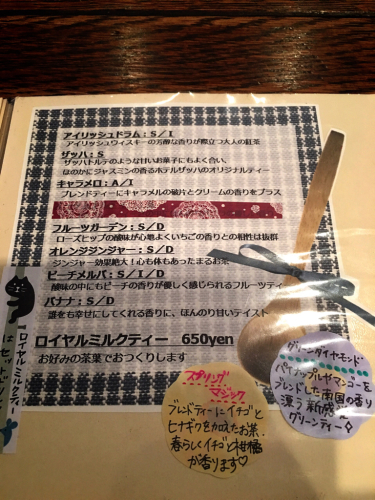 アイリッシュドラム：S／I
アイリッシュウィスキーの芳醇な香りが際立つ大人の紅茶
ザッハ：S
ザッハトルテのような甘いお菓子にもよく合い、
ほのかにジャスミンの香るホテルザッハのオリジナルティー
キャラメロ：A／I
ブレンドティーにキャラメルの破片とクリームの香りをプラス
フルーツガーデン：S／D
ローズヒップの酸味が心地よくいちごの香りとの相性は抜群
オレンジジンジャー：S／D
ジンジャー効果絶大！心も体もあったまるお茶
ピーチメルバ：S／I／D
酸味の中にもピーチの香りが優しく感じられるフルーツティ
バナナ：S／D
誰をも幸せにしてくれる香りに、ほんのり甘いテイスト
ロイヤルミルクティー　650yen
お好みの茶葉でおつくりします
ロイヤルミルクティー
はセット
スプリング
マジック
ブレンドティーにイチゴと
ヒナギクを加えたお茶。
春らしくイチゴと柑橘
が香ります♡
グリーンダイヤモンド
パイナップルやマンゴーを
ブレンドした南国の香り
漂う新感覚
グリーンティー